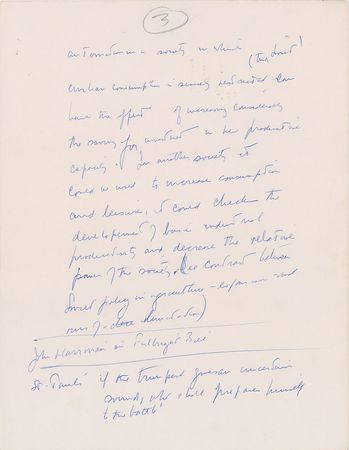 3
automation in a society in which
(the Soviet)
civilian consumption is severely restricted can
have the effect of increasing considerably
the saving for investment in her productive
capacity. In another society it
could be used to increase consumption
and leisure, it could check the
development of basic industrial
productivity and decrease the relative
power of the society. contrast between
Soviet policy in agriculture - expansion and
ours of
John in Fulbright Bill
St. Paul's if the trumpet gives an uncertain
sound, who shall prepare himself
to the battle